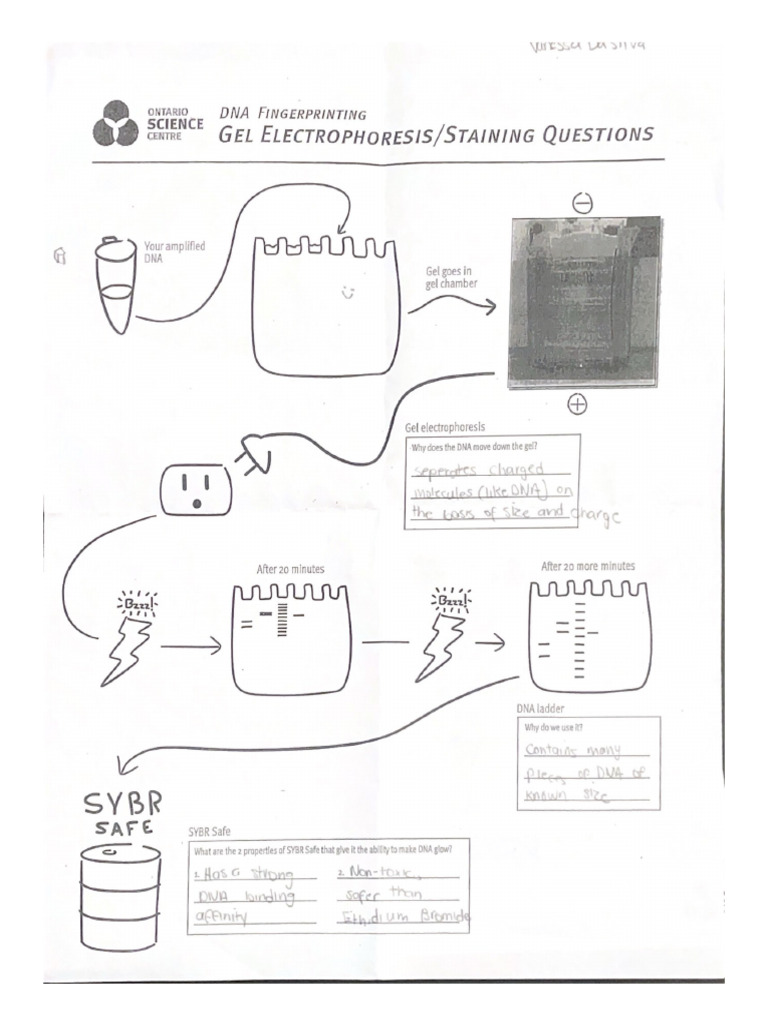 Vanessa DaSilva
ONTARIO
SCIENCE
CENTRE
DNA FINGERPRINTING
GEL ELECTROPHORESIS/STAINING QUESTIONS
Your amplified
DNA
Gel goes in
gel chamber
Gel electrophoresis
Why does the DNA move down the gel?
seperates charged
molecules (like DNA) on
the basis of size and charge
After 20 minutes
After 20 more minutes
Bzzz!
Bzzz!
DNA ladder
Why do we use it?
Contains many
pieces of DNA of
known size
SYBR
SAFE
SYBR Safe
What are the 2 properties of SYBR Safe that give it the ability to make DNA glow?
1. Has a strong
DNA binding
affinity
2. Non-toxic,
safer than
Ethidium Bromide